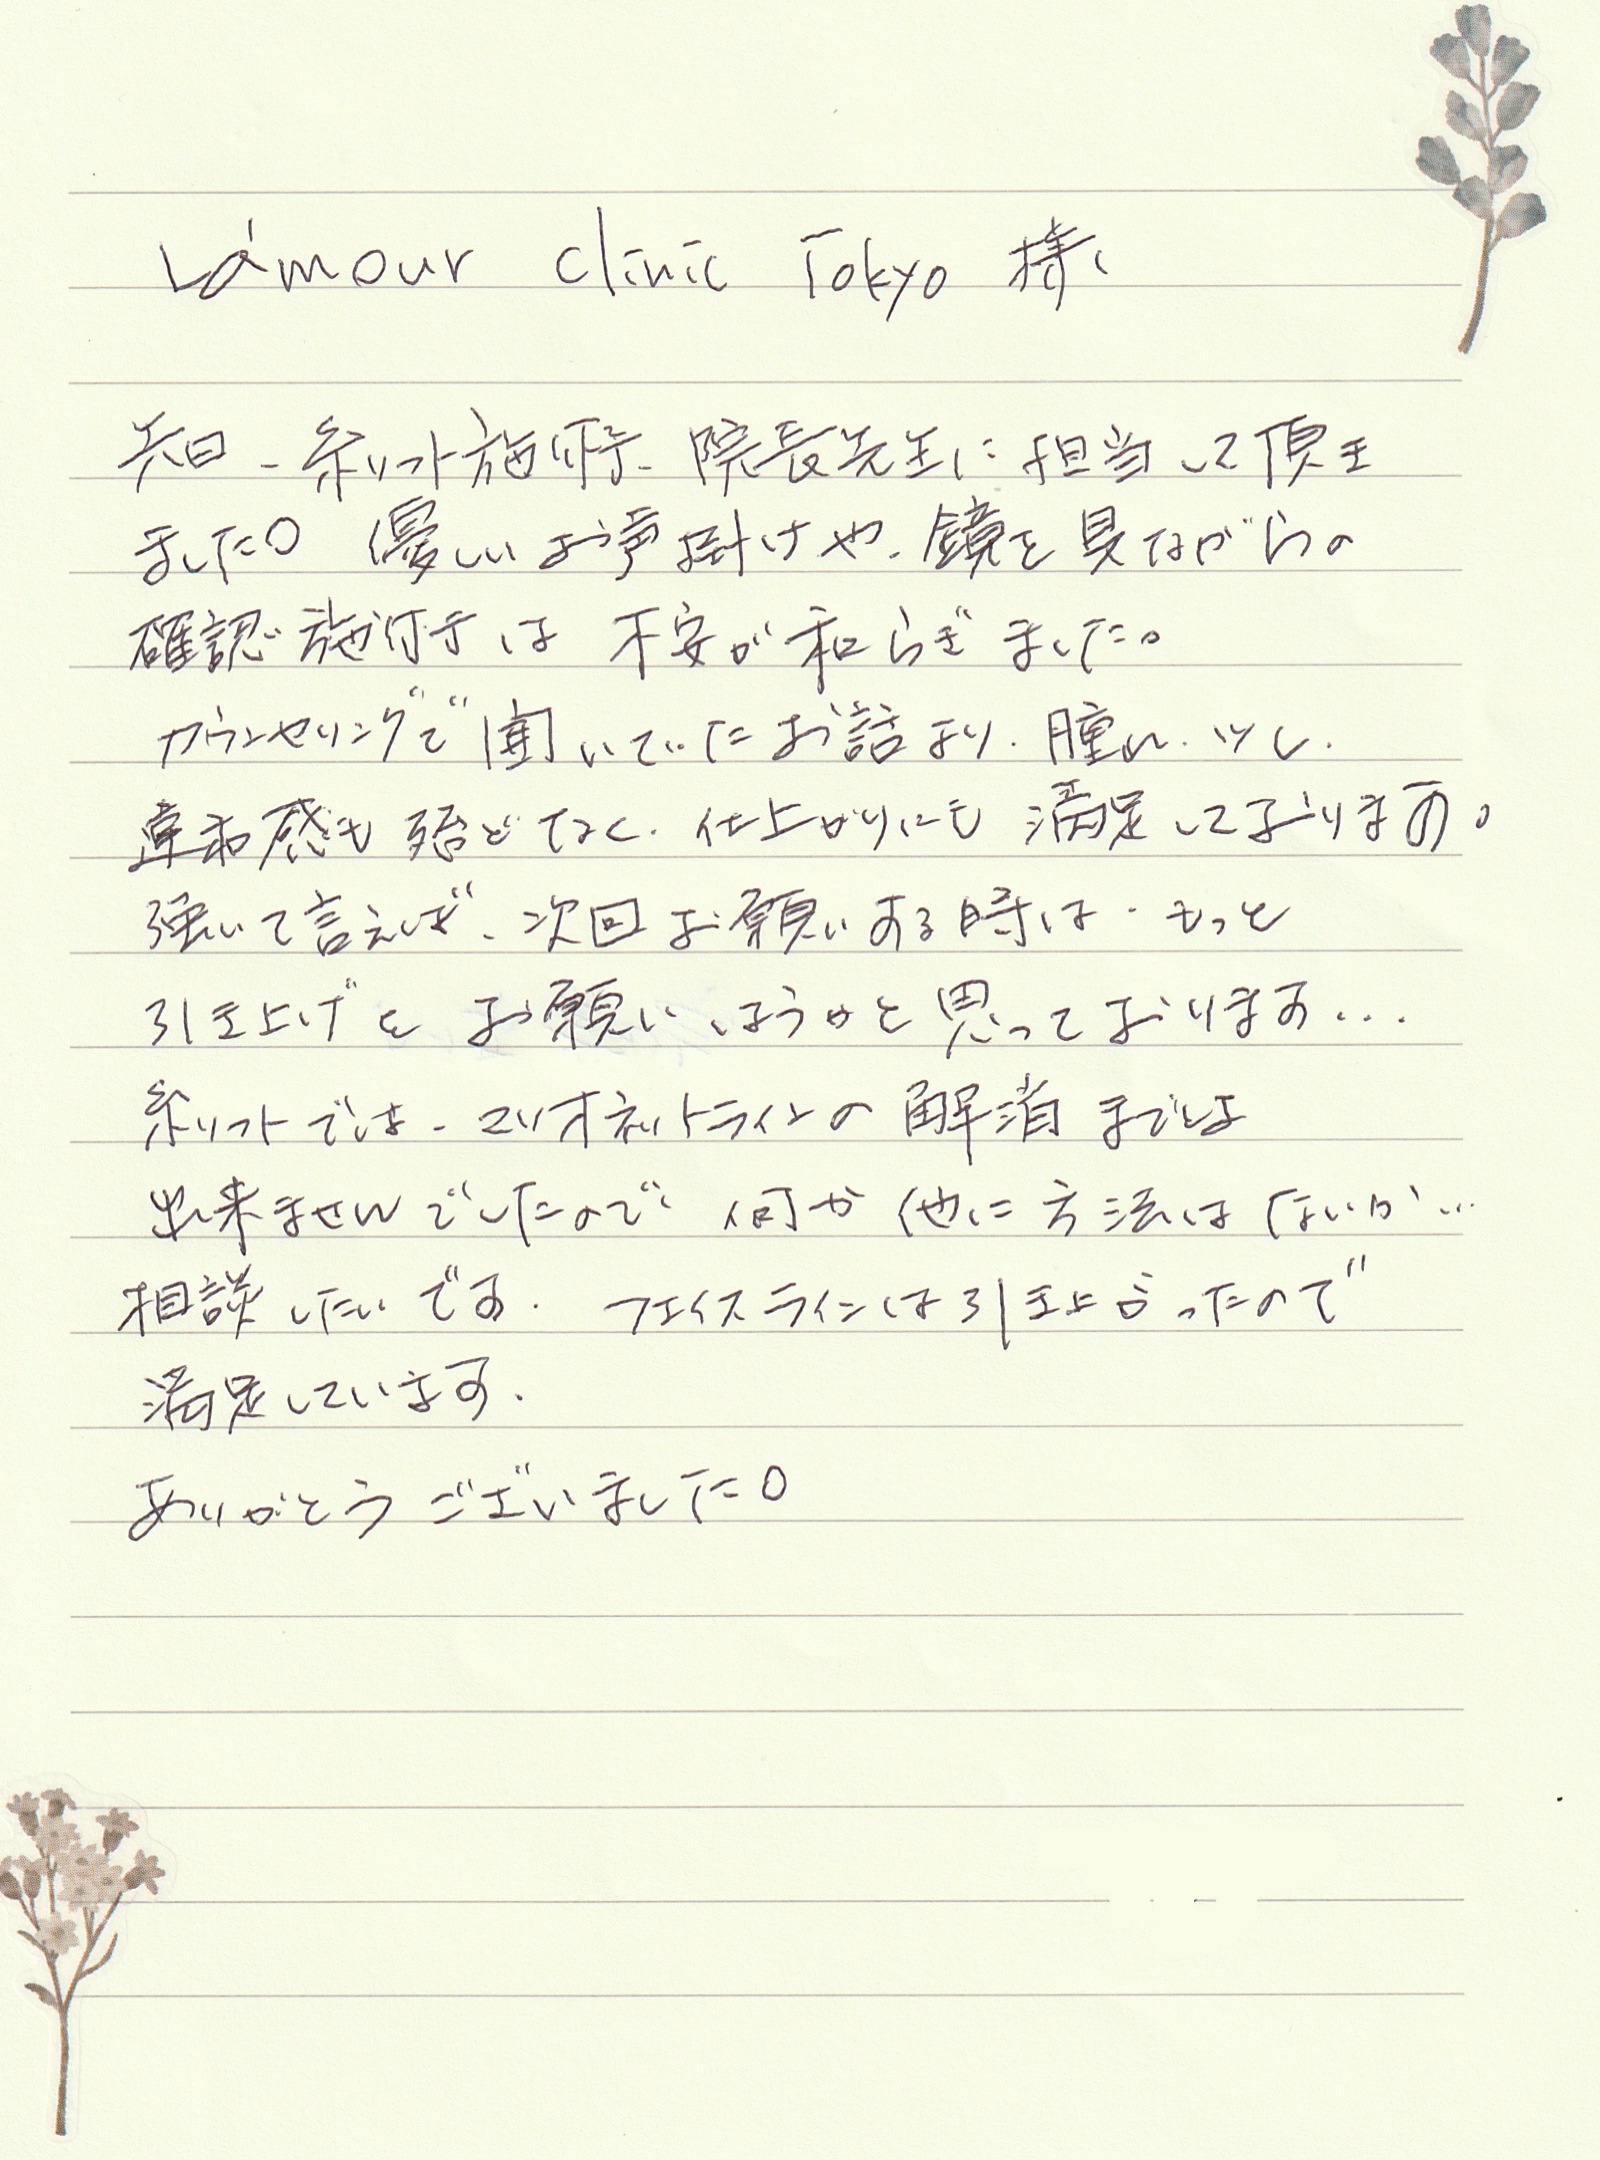 L'amour clinic Tokyo 様
先日、糸リフト施術、院長先生に担当して頂き
ました。優しいお声掛けや、鏡を見ながらの
確認施術は不安が和らぎました。
カウンセリングで聞いていたお話より、腫れ、ツレ、
違和感も殆どなく、仕上がりにも満足しております。
強いて言えば、次回お願いする時は、もっと
引き上げをお願いしようかと思っております...
糸リフトでは、マリオネットラインの解消までは
出来ませんでしたので、何か他に方法はないか...
相談したいです。フェイスラインは引き上がったので
満足しています。
ありがとうございました。